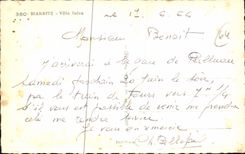 380 BIARRITZ - Villa Belza
le 1er 6. 64
Monsieur Benoit
J'arriverai à la gare de
Samedi prochain 20 juin le soir,
par le train de Tours vers 7h 1/4
S'il vous est possible de venir me prendre
cela me rendra service.
Je vous en remercie